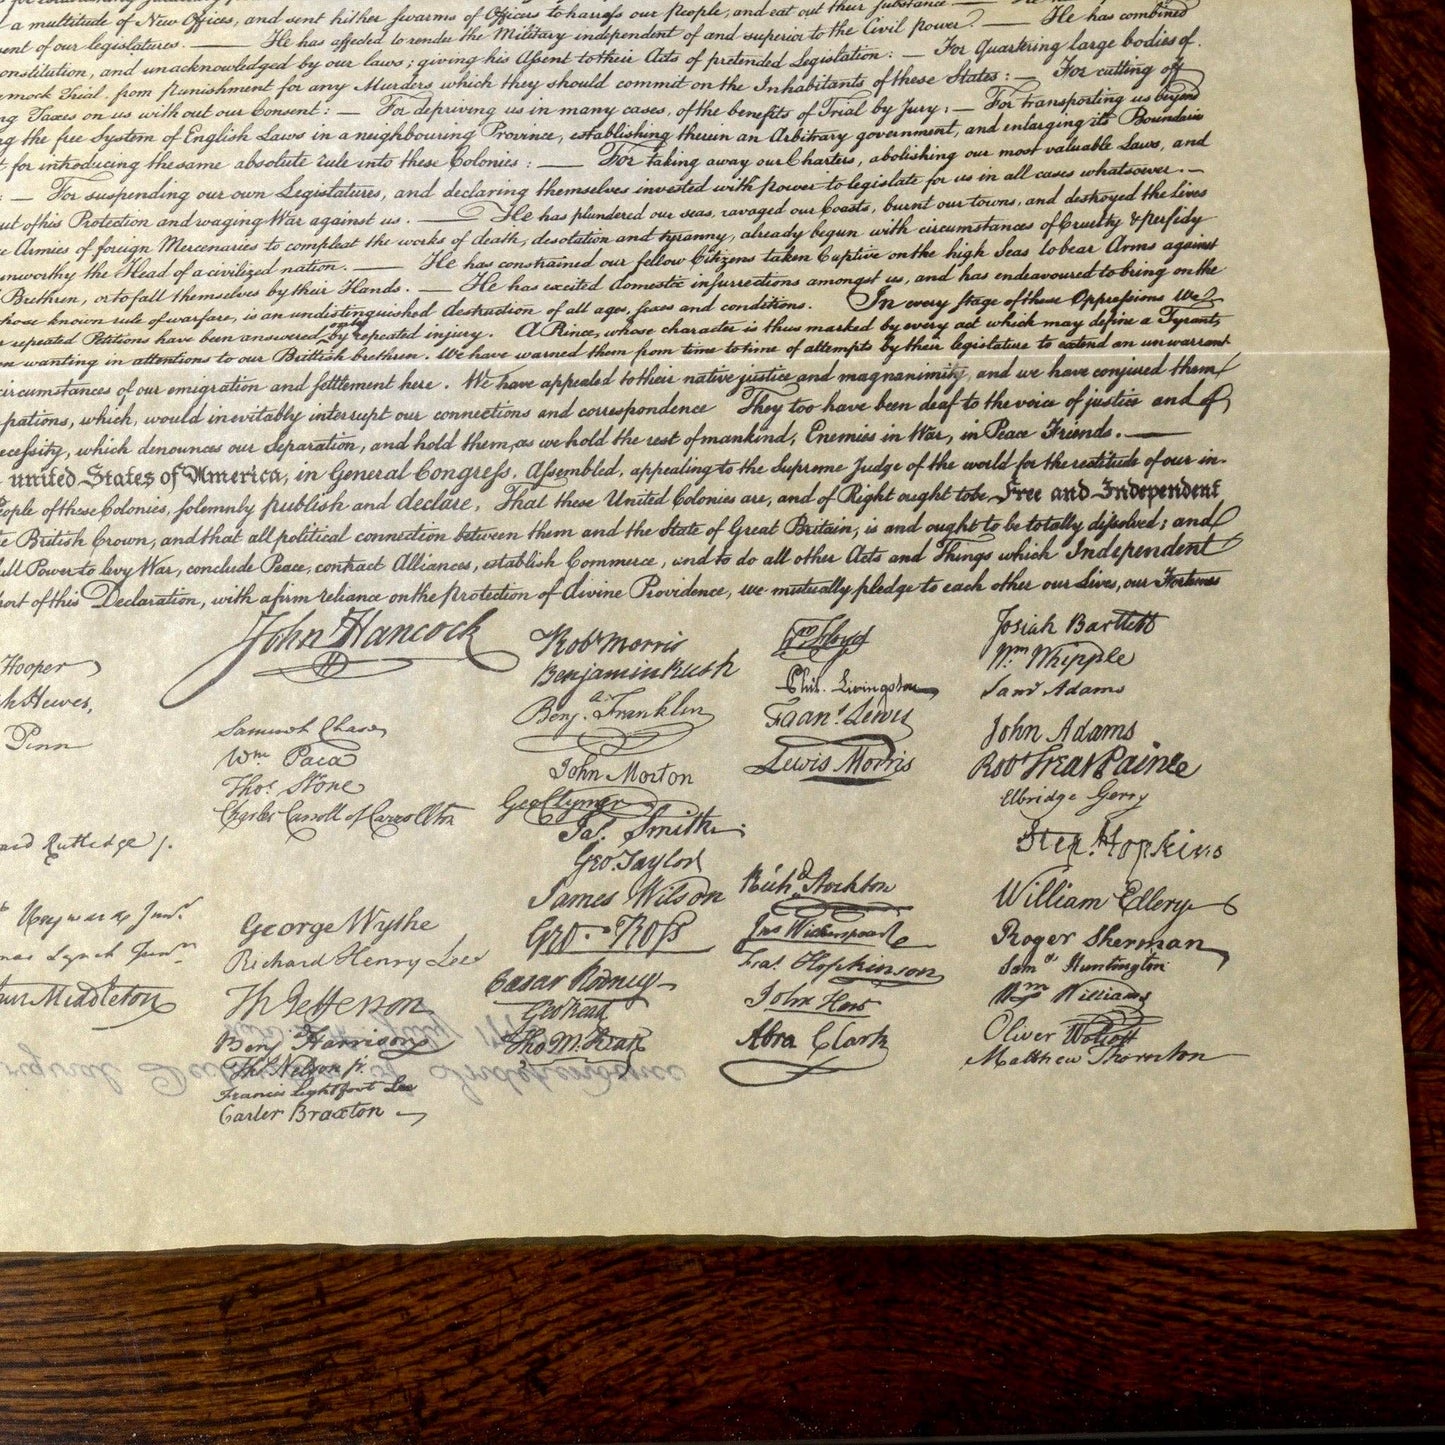 a multitude of New Offices, and sent hither swarms of Officers to harrass our People, and eat out their substance. —
ent of our legislatures. — He has affected to render the Military independent of and superior to the Civil Power. — He has combined
onstitution, and unacknowledged by our laws; giving his Assent to their Acts of pretended Legislation: — For Quartering large bodies of
mock Trial from Punishment for any Murders which they should commit on the Inhabitants of these States: — For cutting off
ng Taxes on us without our Consent: — For depriving us in many cases, of the benefits of Trial by Jury: — For transporting us beyond
ng the free System of English Laws in a neighbouring Province, establishing therein an Arbitrary government, and enlarging its Boundaries
t for introducing the same absolute rule into these Colonies: — For taking away our Charters, abolishing our most valuable Laws, and
: — For suspending our own Legislatures, and declaring themselves invested with power to legislate for us in all cases whatsoever. —
ut of his Protection and waging War against us. — He has plundered our seas, ravaged our Coasts, burnt our towns, and destroyed the lives
e Armies of foreign Mercenaries to compleat the works of death, desolation and tyranny, already begun with circumstances of Cruelty & perfidy
unworthy the Head of a civilized nation. — He has constrained our fellow Citizens taken Captive on the high Seas to bear Arms against
Brethren, or to fall themselves by their Hands. — He has excited domestic insurrections amongst us, and has endeavoured to bring on the
hose known rule of warfare, is an undistinguished destruction of all ages, sexes and conditions. In every stage of these Oppressions We
r repeated Petitions have been answered only by repeated injury. A Prince, whose character is thus marked by every act which may define a Tyrant,
en wanting in attentions to our Brittish brethren. We have warned them from time to time of attempts by their legislature to extend an unwarrant
circumstances of our emigration and settlement here. We have appealed to their native justice and magnanimity, and we have conjured them
pations, which, would inevitably interrupt our connections and correspondence They too have been deaf to the voice of justice and of
ecessity, which denounces our Separation, and hold them, as we hold the rest of mankind, Enemies in War, in Peace Friends. —
united States of America, in General Congress, Assembled, appealing to the Supreme Judge of the world for the rectitude of our in-
People of these Colonies, solemnly publish and declare, That these United Colonies are, and of Right ought to be Free and Independent
e British Crown, and that all political connection between them and the State of Great Britain, is and ought to be totally dissolved; and
full Power to levy War, conclude Peace, contract Alliances, establish Commerce, and to do all other Acts and Things which Independent
port of this Declaration, with a firm reliance on the Protection of divine Providence, we mutually pledge to each other our Lives, our Fortunes
Hooper
h Hewes,
Penn
ard Rutledge /.
Heyward Junr.
mas Lynch Junr.
hur Middleton
John Hancock
Samuel Chase
Wm Paca
Thos. Stone
Charles Carroll of Carrollton
George Wythe
Richard Henry Lee
Th Jefferson
Benj Harrison
Th Nelson jr.
Francis Lightfoot Lee
Carter Braxton
Robt Morris
Benjamin Rush
Benj. Franklin
John Morton
Geo Clymer
Jas. Smith
Geo. Taylor
James Wilson
Geo. Ross
Caesar Rodney
Geo Read
Tho M. Kean
Wm Floyd
Phil. Livingston
Frans. Lewis
Lewis Morris
Richd. Stockton
Jno Witherspoon
Fras. Hopkinson
John Hart
Abra Clark
Josiah Bartlett
Wm Whipple
Saml Adams
John Adams
Robt Treat Paine
Elbridge Gerry
Step. Hopkins
William Ellery
Roger Sherman
Saml Huntington
Wm Williams
Oliver Wolcott
Matthew Thornton